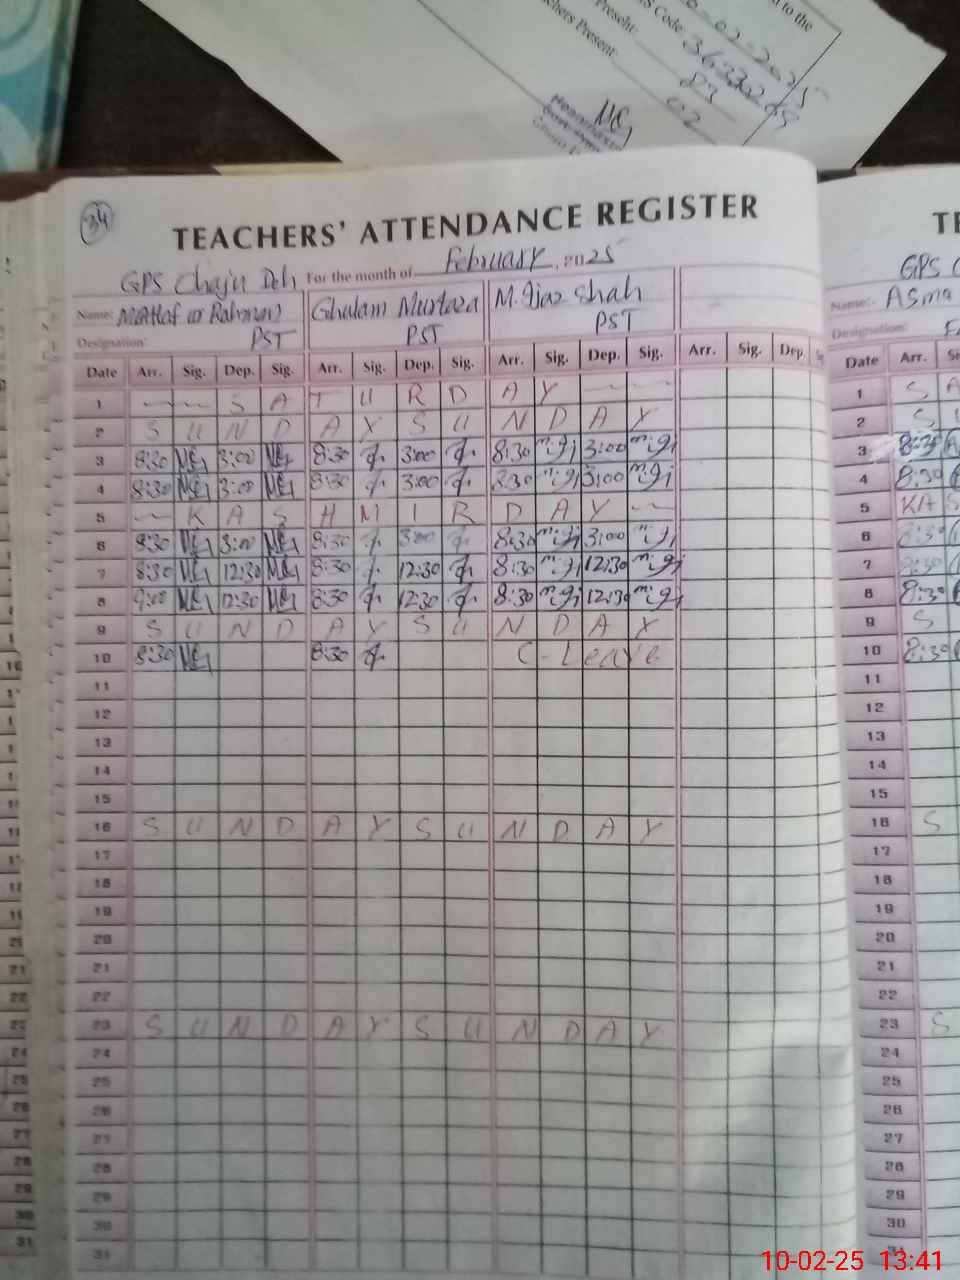 to the
-02-2025
Code 36330269
Present: 87
Teachers Present: 02
34
TEACHERS' ATTENDANCE REGISTER
GPS Chaju Deh For the month of February, 2025
Name: ur Rahman Ghulam Murtaza M. Ijaz Shah
Designation: PST PST PST
Date Arr. Sig. Dep. Sig. Arr. Sig. Dep. Sig. Arr. Sig. Dep. Sig. Arr. Sig. Dep.
1 — — S A T U R D A Y — —
2 S U N D A Y S U N D A Y
3 8:30 3:00 8:30 3:00 8:30 3:00
4 8:30 3:00 8:30 3:00 8:30 3:00
5 — K A S H M I R D A Y —
6 8:30 3:00 8:30 3:00 8:30 3:00
7 8:30 12:30 8:30 12:30 8:30 12:30
8 9:00 12:30 8:30 12:30 8:30 12:30
9 S U N D A Y S U N D A Y
10 8:30 8:30 C-Leave
11
12
13
14
15
16 S U N D A Y S U N D A Y
17
18
19
20
21
22
23 S U N D A Y S U N D A Y
24
25
26
27
28
29
30
31
TE
GPS C
Name:- Asma
Designation:
Date Arr.
1 S A
2 S U
3 8:30
4 8:30
5 KAS
6 8:30
7 8:30
8 8:30
9 S
10 8:30
11
12
13
14
15
16 S
17
18
19
20
21
22
23 S
24
25
26
27
28
29
30
31
10-02-25 13:41